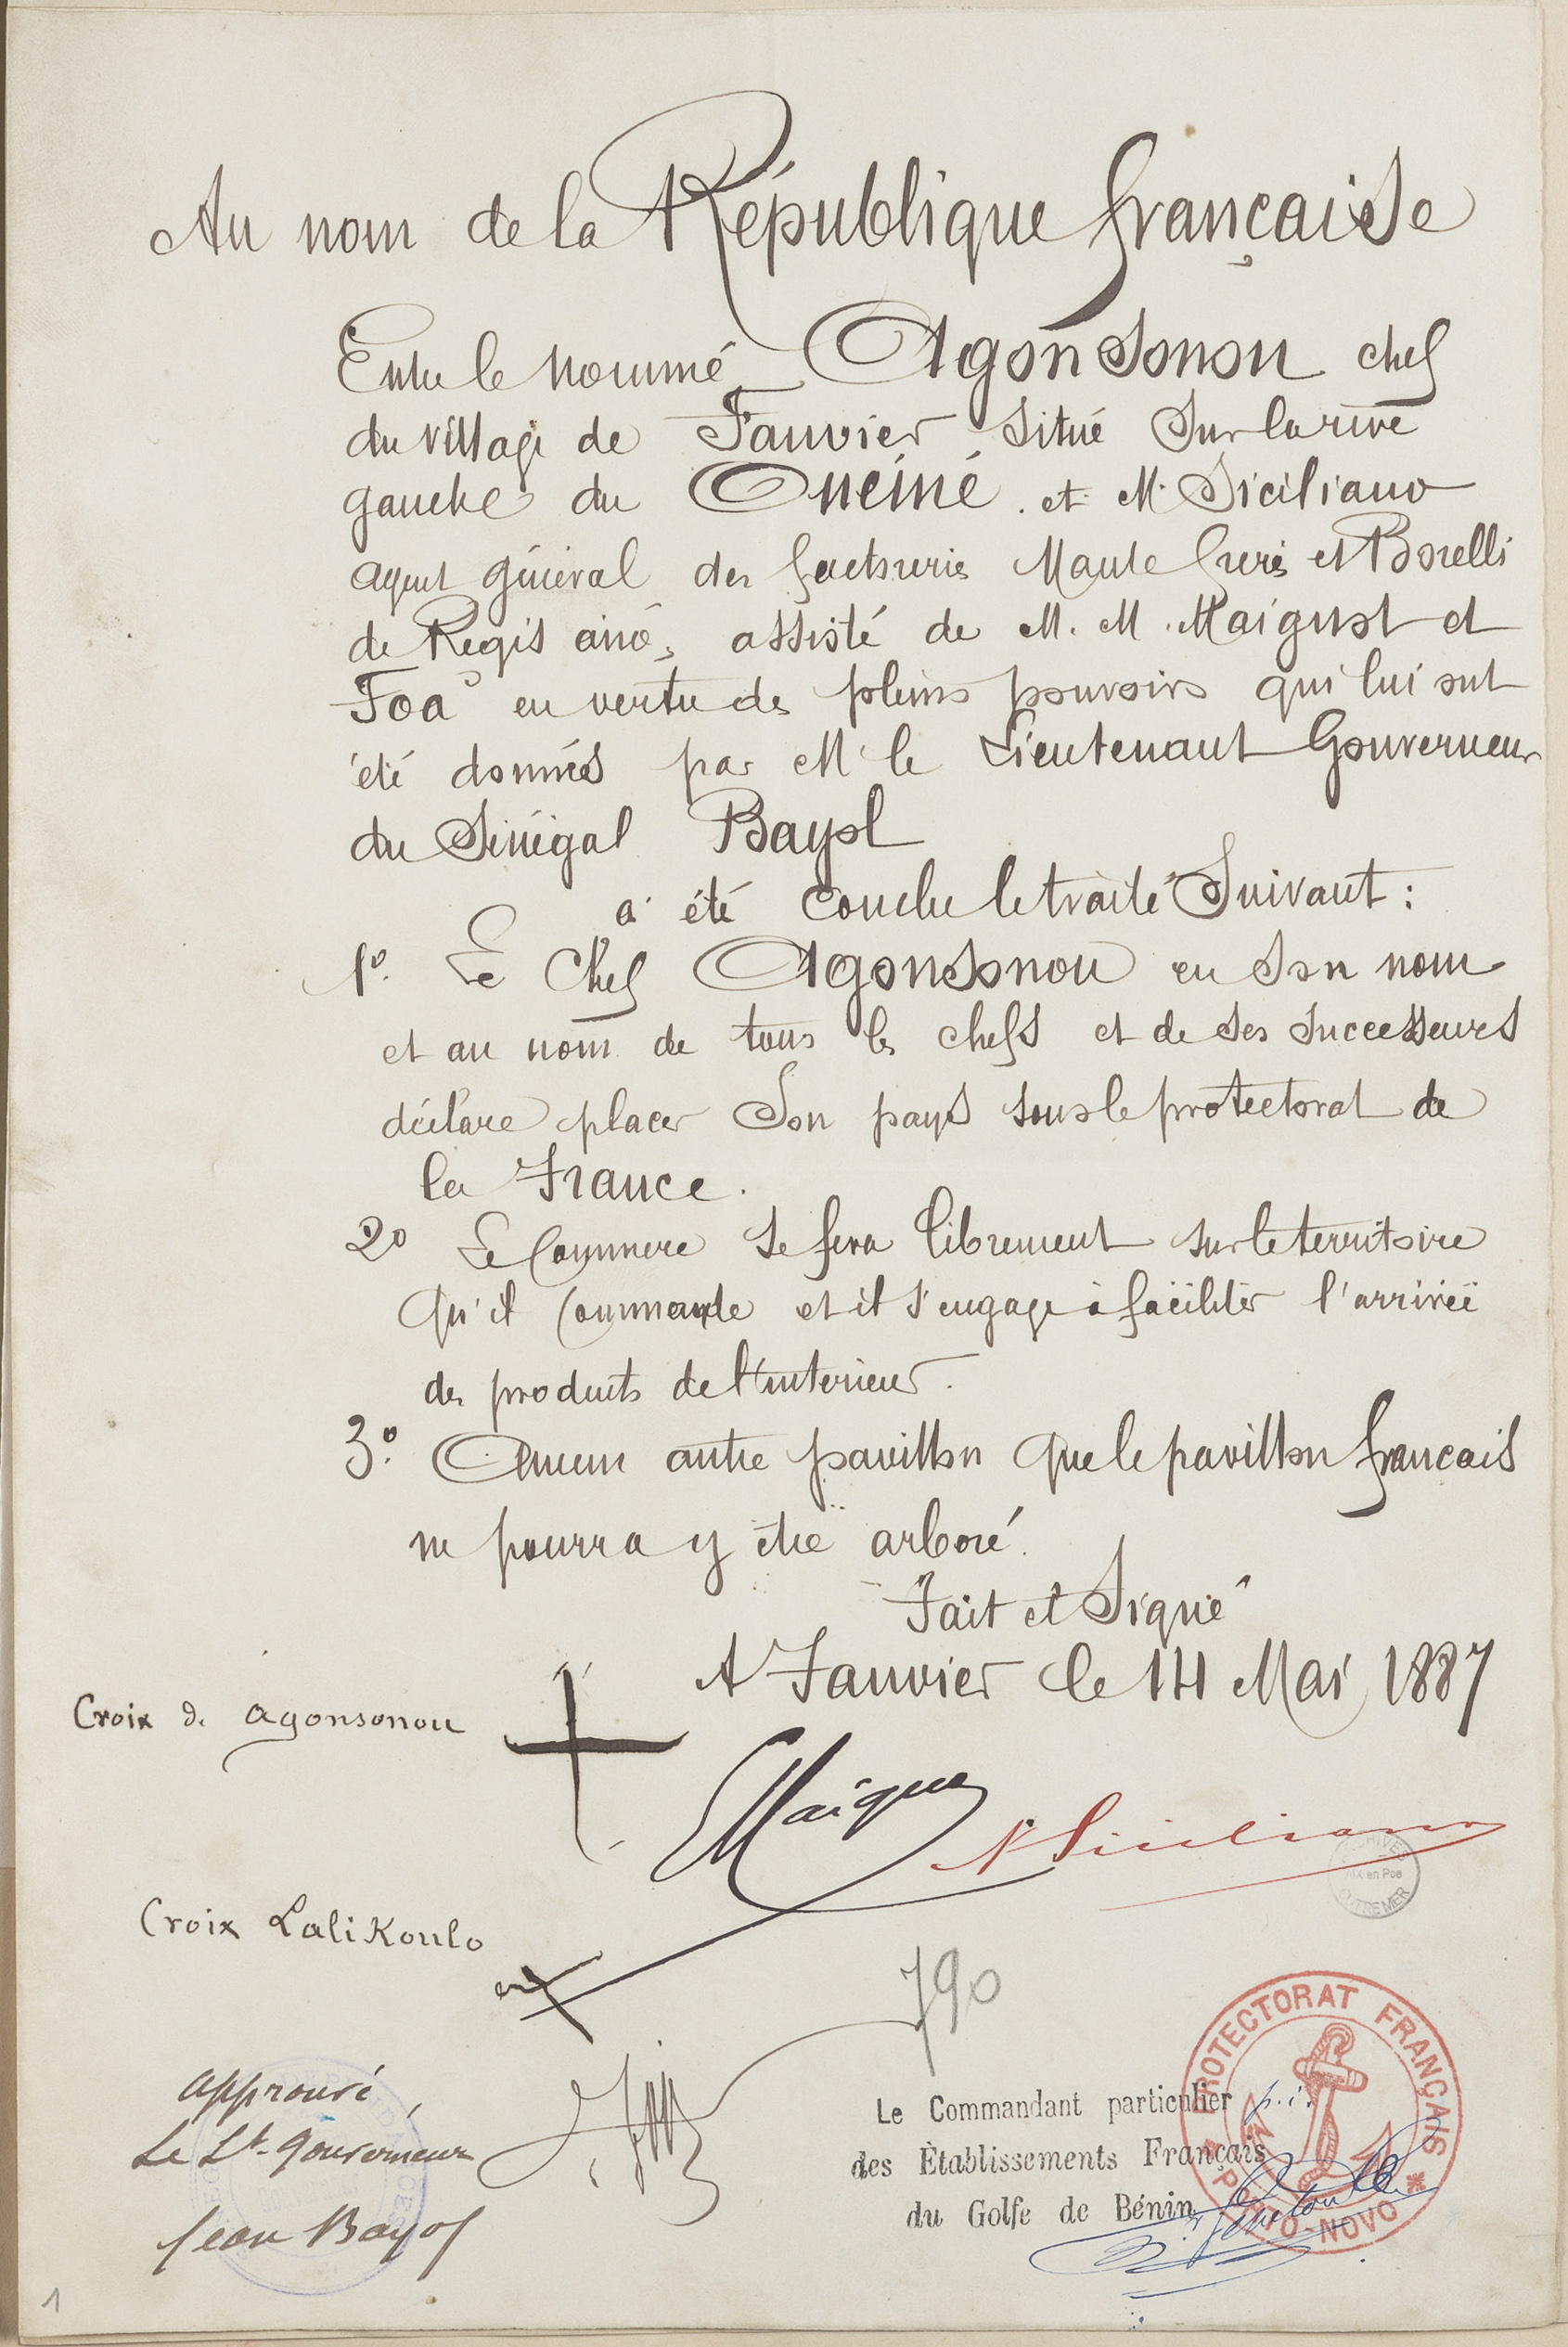 Au nom de la République française
Entre le nommé Agonsonou chef
du village de Fanvier situé sur la rive
gauche du Ouémé et M. Siciliano
agent général des factoreries Mante frères et Borelli
de Régis ainé, assisté de M. M. Maignot et
Foa en vertu des pleins pouvoirs qui lui ont
été donnés par M le Lieutenant Gouverneur
du Sénégal Bayol
a été conclu le traité Suivant :
1º. Le Chef Agonsonou en son nom
et au nom de tous les chefs et de ses successeurs
déclare placer son pays sous le protectorat de
la France.
2º Le Commerce se fera librement sur le territoire
Qu'il Commande et il s'engage à faciliter l'arrivée
des produits de l'interieur.
3º. Aucun autre pavillon que le pavillon français
ne pourra y être arboré.
Fait et Signé
A Fanvier le 14 Mai 1887
Croix de Agonsonou
Siciliano
Croix Lalikoulo
790
PROTECTORAT FRANÇAIS
* PORTO-NOVO *
approuvé,
Le Lt. Gouverneur
Jean Bayol
Le Commandant particulier p.i.
des Établissements Français
du Golfe de Bénin
1